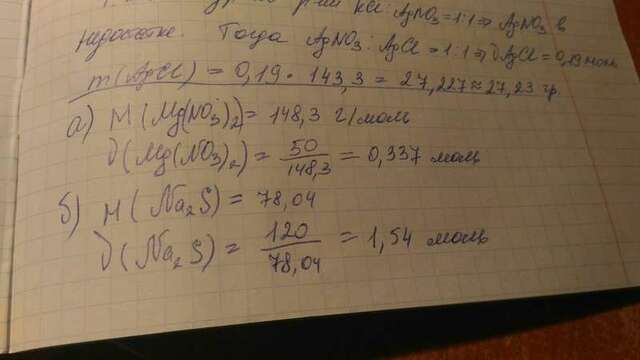 KCl : AgNO₃ = 1:1 ⇒ AgNO₃ в
недостатке. Тогда AgNO₃ : AgCl = 1:1 ⇒ ϑ AgCl = 0,19 моль
m(AgCl) = 0,19 · 143,3 = 27,227 ≈ 27,23 гр.
а) М(Mg(NO₃)₂) = 148,3 г/моль
ϑ(Mg(NO₃)₂) = 50/148,3 = 0,337 моль
б) М(Na₂S) = 78,04
ϑ(Na₂S) = 120/78,04 = 1,54 моль